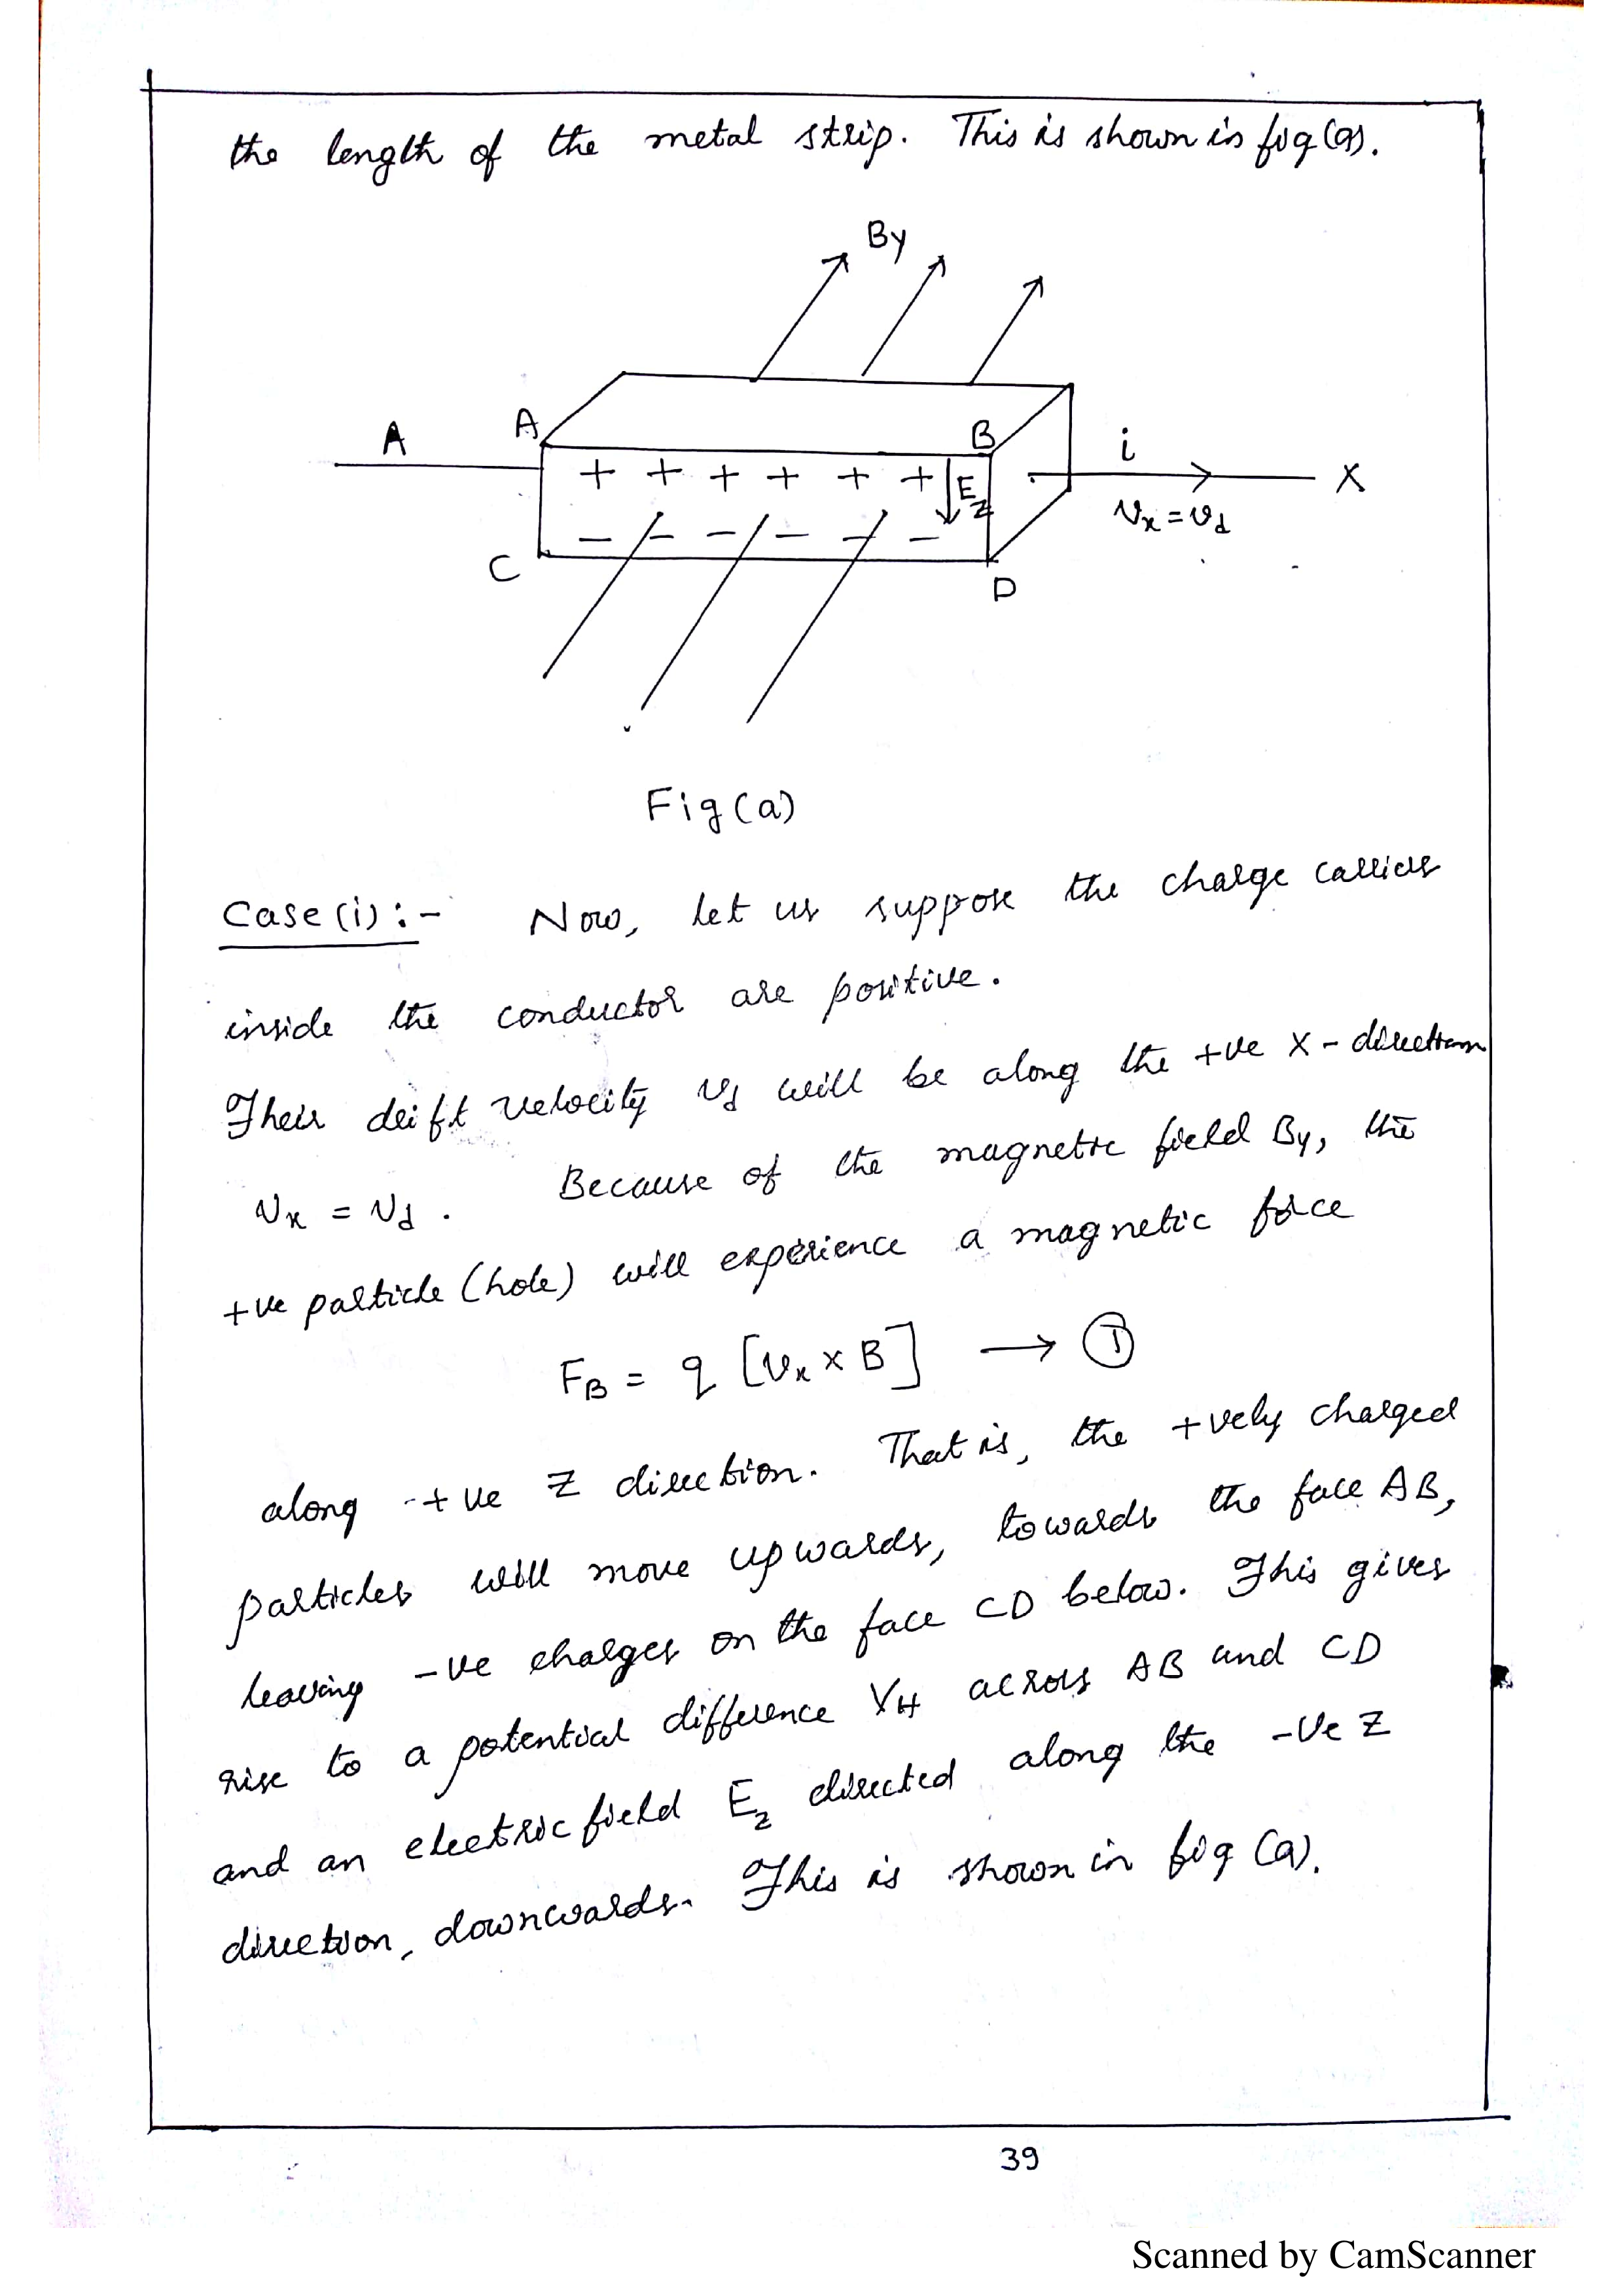 the length of the metal strip. This is shown in fig (a).
By
A
A
B
i
+ + + + + +
Ez
X
Vx = Vd
− − − − − −
C
D
Fig (a)
Case (i) :- Now, let us suppose the charge carriers
inside the conductor are positive.
Their drift velocity Vd will be along the +ve X - direction
Vx = Vd . Because of the magnetic field By, the
+ve particle (hole) will experience a magnetic force
FB = q [Vx × B] → ①
along +ve Z direction. That is, the +vely charged
particles will move upwards, towards the face AB,
leaving -ve charges on the face CD below. This gives
rise to a potential difference VH across AB and CD
and an electric field Ez directed along the -ve Z
direction, downwards. This is shown in fig (a).
39
Scanned by CamScanner